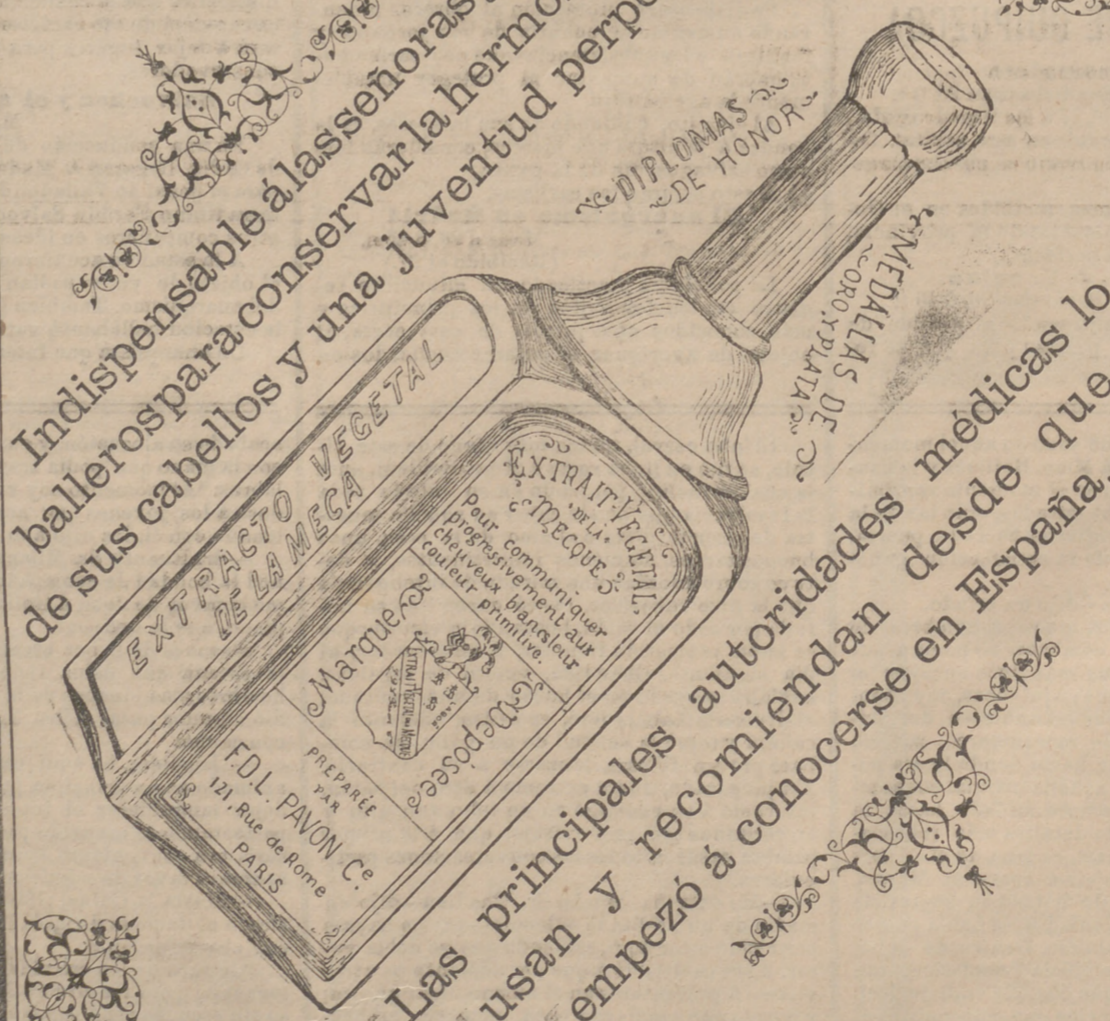 Indispensable á las señoras
balleros para conservar la hermo
de sus cabellos y una juventud perp
DIPLOMAS
DE HONOR
MEDALLAS DE
ORO, Y PLATA
EXTRACTO VEGETAL
DE LA MECA
EXTRAIT-VEGETAL
DE LA
MECQUE
Pour communiquer
progressivement aux
cheuveux blancs leur
couleur primitive.
Marque Déposée
PREPARÉE
PAR
F.D.L. PAVON Ce.
121, Rue de Rome
PARIS
Las principales autoridades médicas lo
usan y recomiendan desde que
empezó á conocerse en España.